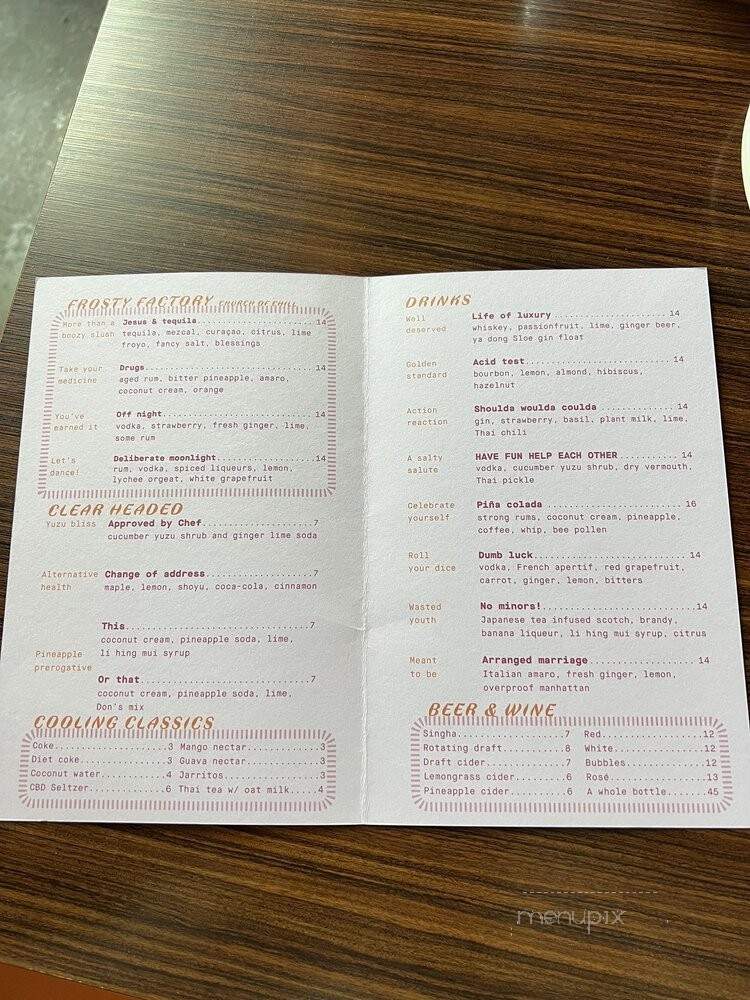 FROSTY FACTORY CHURCH OF CHILL
More than a boozy slush
Jesus & tequila..........14
tequila, mezcal, curaçao, citrus, lime
froyo, fancy salt, blessings
Take your medicine
Drugs..........14
aged rum, bitter pineapple, amaro,
coconut cream, orange
You've earned it
Off night..........14
vodka, strawberry, fresh ginger, lime,
some rum
Let's dance!
Deliberate moonlight..........14
rum, vodka, spiced liqueurs, lemon,
lychee orgeat, white grapefruit
CLEAR HEADED
Yuzu bliss
Approved by Chef..........7
cucumber yuzu shrub and ginger lime soda
Alternative health
Change of address..........7
maple, lemon, shoyu, coca-cola, cinnamon
Pineapple prerogative
This..........7
coconut cream, pineapple soda, lime,
li hing mui syrup
Or that..........7
coconut cream, pineapple soda, lime,
Don's mix
COOLING CLASSICS
Coke..........3
Diet coke..........3
Coconut water..........4
CBD Seltzer..........6
Mango nectar..........3
Guava nectar..........3
Jarritos..........3
Thai tea w/ oat milk.....4
DRINKS
Well deserved
Life of luxury..........14
whiskey, passionfruit, lime, ginger beer,
ya dong Sloe gin float
Golden standard
Acid test..........14
bourbon, lemon, almond, hibiscus,
hazelnut
Action reaction
Shoulda woulda coulda..........14
gin, strawberry, basil, plant milk, lime,
Thai chili
A salty salute
HAVE FUN HELP EACH OTHER..........14
vodka, cucumber yuzu shrub, dry vermouth,
Thai pickle
Celebrate yourself
Piña colada..........16
strong rums, coconut cream, pineapple,
coffee, whip, bee pollen
Roll your dice
Dumb luck..........14
vodka, French apertif, red grapefruit,
carrot, ginger, lemon, bitters
Wasted youth
No minors!..........14
Japanese tea infused scotch, brandy,
banana liqueur, li hing mui syrup, citrus
Meant to be
Arranged marriage..........14
Italian amaro, fresh ginger, lemon,
overproof manhattan
BEER & WINE
Singha..........7
Rotating draft..........8
Draft cider..........7
Lemongrass cider..........6
Pineapple cider..........6
Red..........12
White..........12
Bubbles..........12
Rosé..........13
A whole bottle.......45
menupix